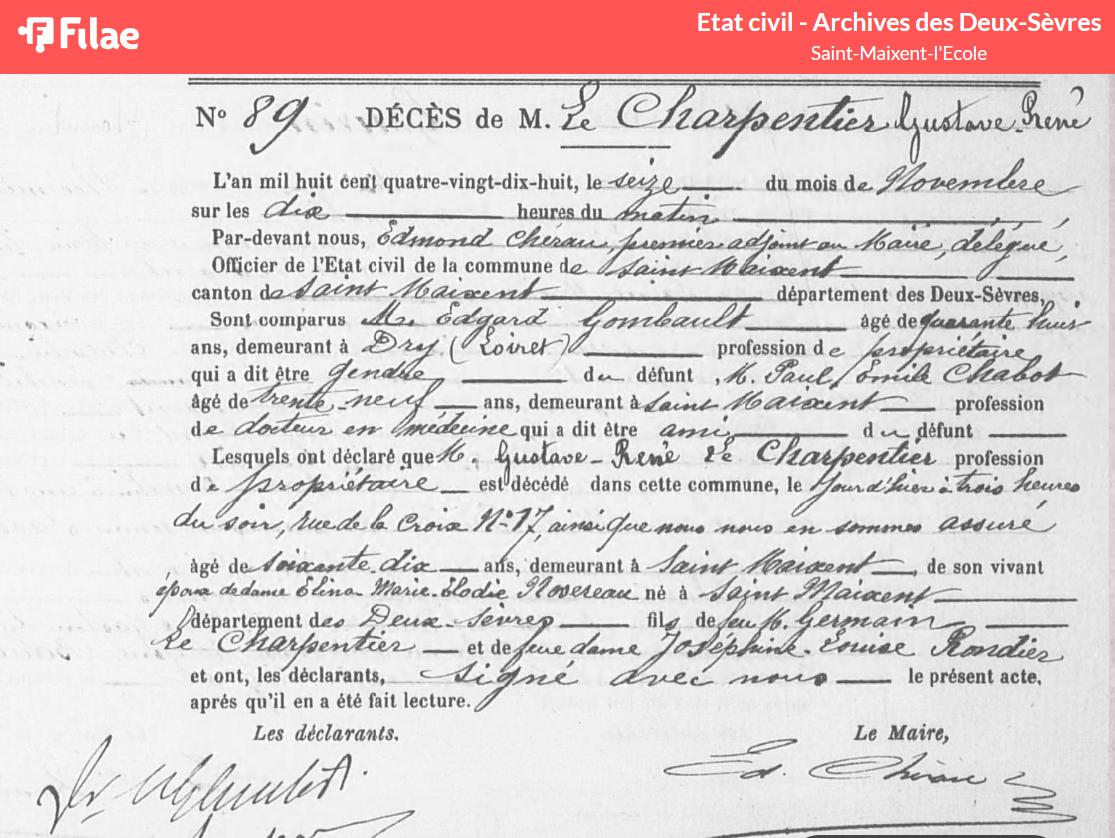 Filae
Etat civil - Archives des Deux-Sèvres
Saint-Maixent-l'Ecole
N° 89 DÉCÈS de M. Le Charpentier Gustave René
L'an mil huit cent quatre-vingt-dix-huit, le seize du mois de Novembre
sur les dix heures du matin
Par-devant nous, Edmond Chérau, premier adjoint au Maire, délégué,
Officier de l'Etat civil de la commune de Saint Maixent
canton de Saint Maixent département des Deux-Sèvres,
Sont comparus M. Edgard Gombault âgé de quarante huit
ans, demeurant à Dry (Loiret) profession de propriétaire
qui a dit être gendre du défunt M. Paul Emile Chabot
âgé de trente neuf ans, demeurant à Saint Maixent profession
de docteur en médecine qui a dit être ami du défunt
Lesquels ont déclaré que M. Gustave-René Le Charpentier profession
de propriétaire est décédé dans cette commune, le jour d'hier à trois heures
du soir, rue de la Croix N° 17, ainsi que nous nous en sommes assuré
âgé de soixante dix ans, demeurant à Saint Maixent, de son vivant
époux de dame Elina Marie-Elodie Novereau né à Saint Maixent
département des Deux Sèvres fils de feu M. Germain
Le Charpentier et de feue dame Joséphine-Louise Rondier
et ont, les déclarants, signé avec nous le présent acte,
après qu'il en a été fait lecture.
Les déclarants. Le Maire,
Ed Chérau